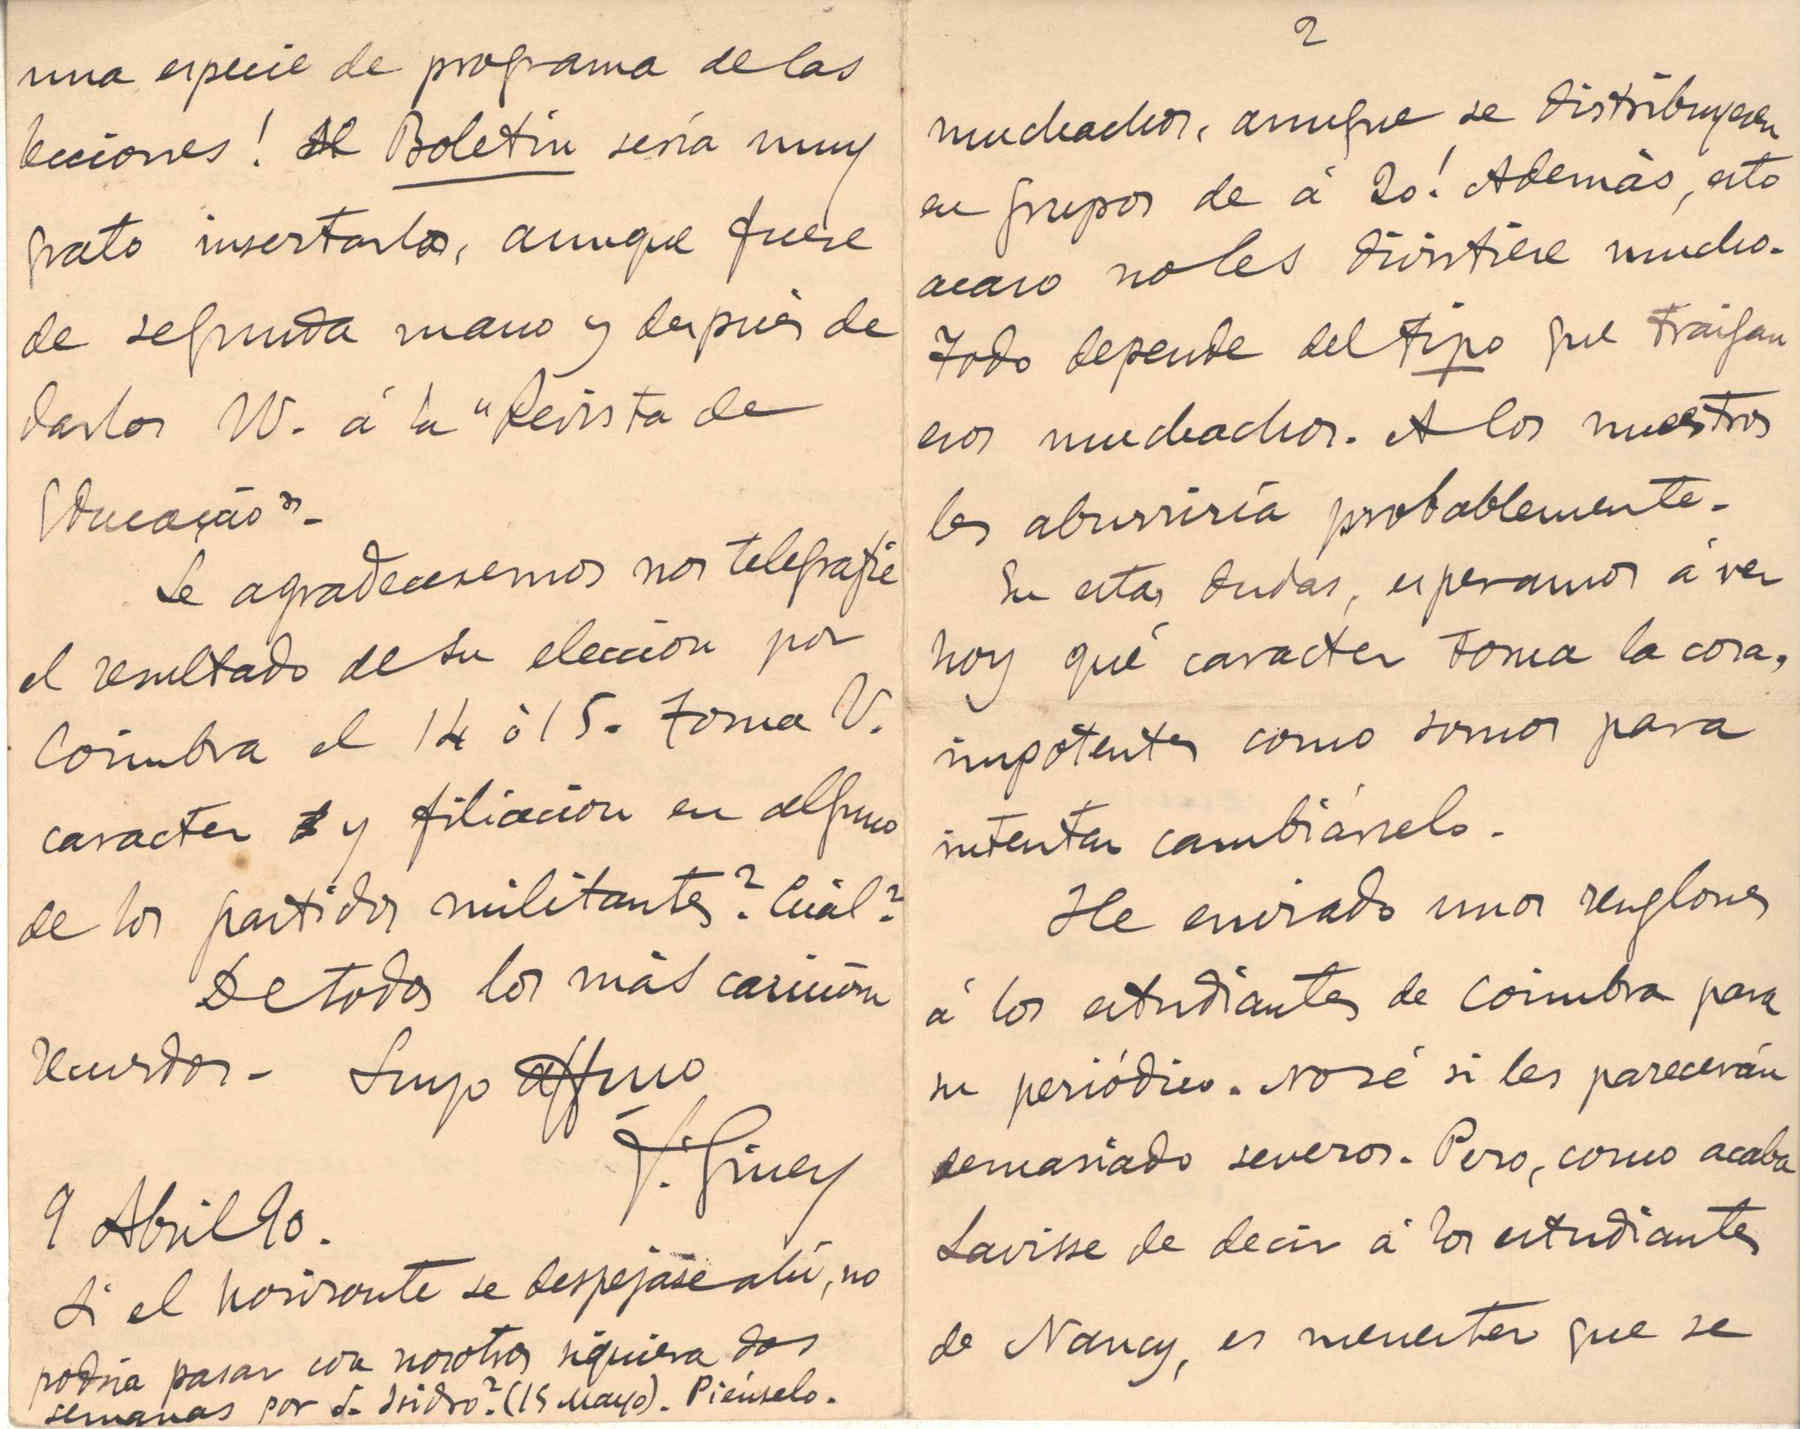 una especie de programa de las
lecciones! Al Boletin sería muy
grato insertarlos, aunque fuese
de segunda mano y después de
darlos W. á la "Revista de
Educaçáo".
Le agradeceremos nos telegrafíe
el resultado de su eleccion por
Coimbra el 14 ó 15. Toma V.
caracter y filiacion en alguno
de los partidos militantes? Cuál?
De todos los más cariñosos
recuerdos. Suyo affmo
F. Giner
9 Abril 90.
Si el horizonte se despejáse ahí, no
podria pasar con nosotros siquiera dos
semanas por S. Isidro? (15 Mayo). Piénselo.
2
muchachos, aunque se distribuyesen
en grupos de á 20! Además, esto
acaso no les divirtiese mucho.
Todo depende del tipo que traigan
esos muchachos. A los nuestros
les aburriría probablemente.
En estas dudas, esperamos á ver
hoy qué caracter toma la cosa,
impotentes como somos para
intentar cambiárselo.
He enviado unos renglones
á los estudiantes de Coimbra para
su periódico. No sé si les parecerán
demasiado severos. Pero, como acaba
Lavisse de decir á los estudiantes
de Nancy, es menester que se